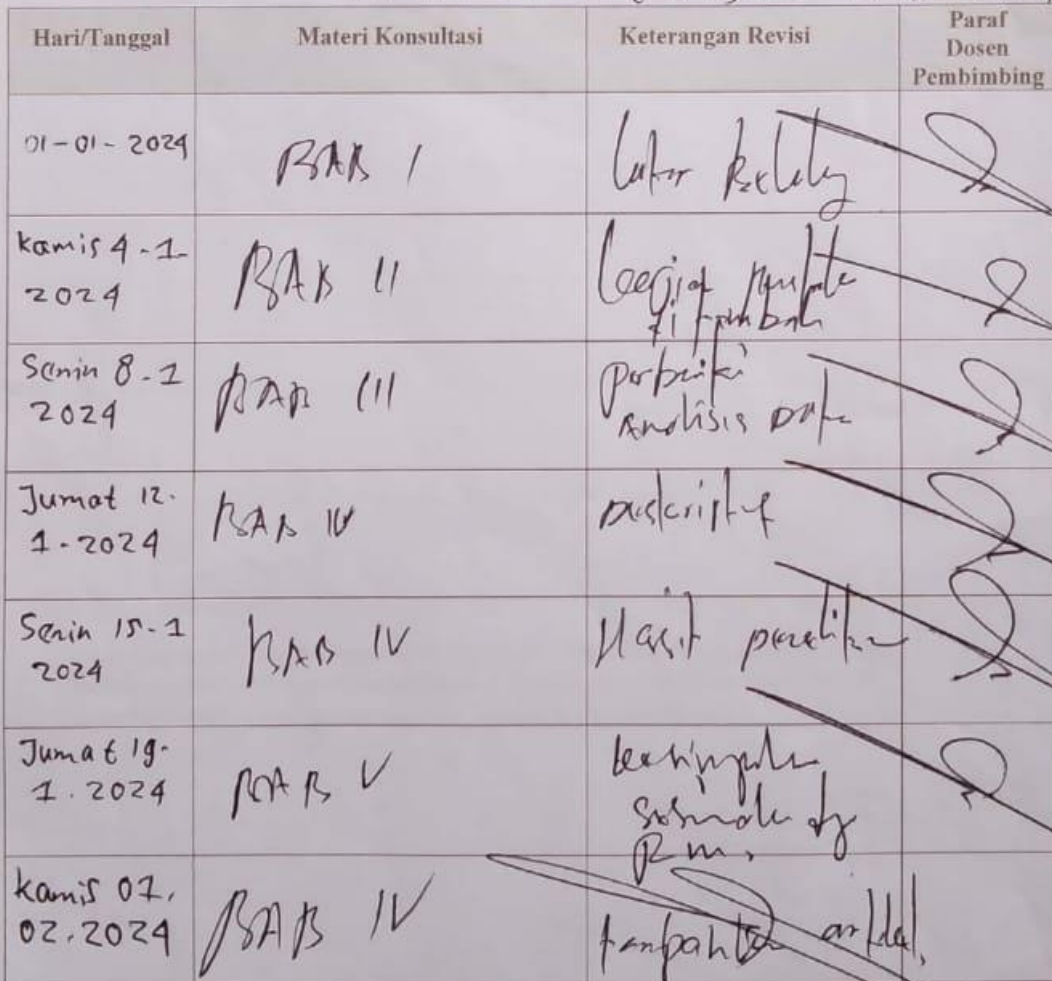 Hari/Tanggal
Materi Konsultasi
Keterangan Revisi
Paraf
Dosen
Pembimbing
01-01-2024
BAB I
Latar Belakang
Kamis 4-1-
2024
BAB II
di tambah
Senin 8-1
2024
BAB III
perbaiki
Analisis Data
Jumat 12.
1-2024
BAB IV
Deskriptif
Senin 15-1
2024
BAB IV
Hasil penelitian
Jumat 19.
1.2024
BAB V
kesimpulan
sesuaikan dg
RM.
Kamis 01.
02.2024
BAB IV